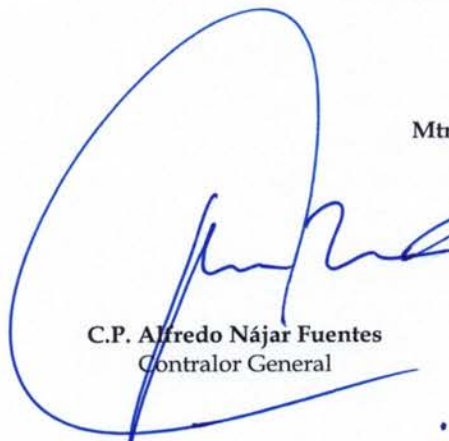 Mtr
C.P. Alfredo Nájar Fuentes
Contralor General